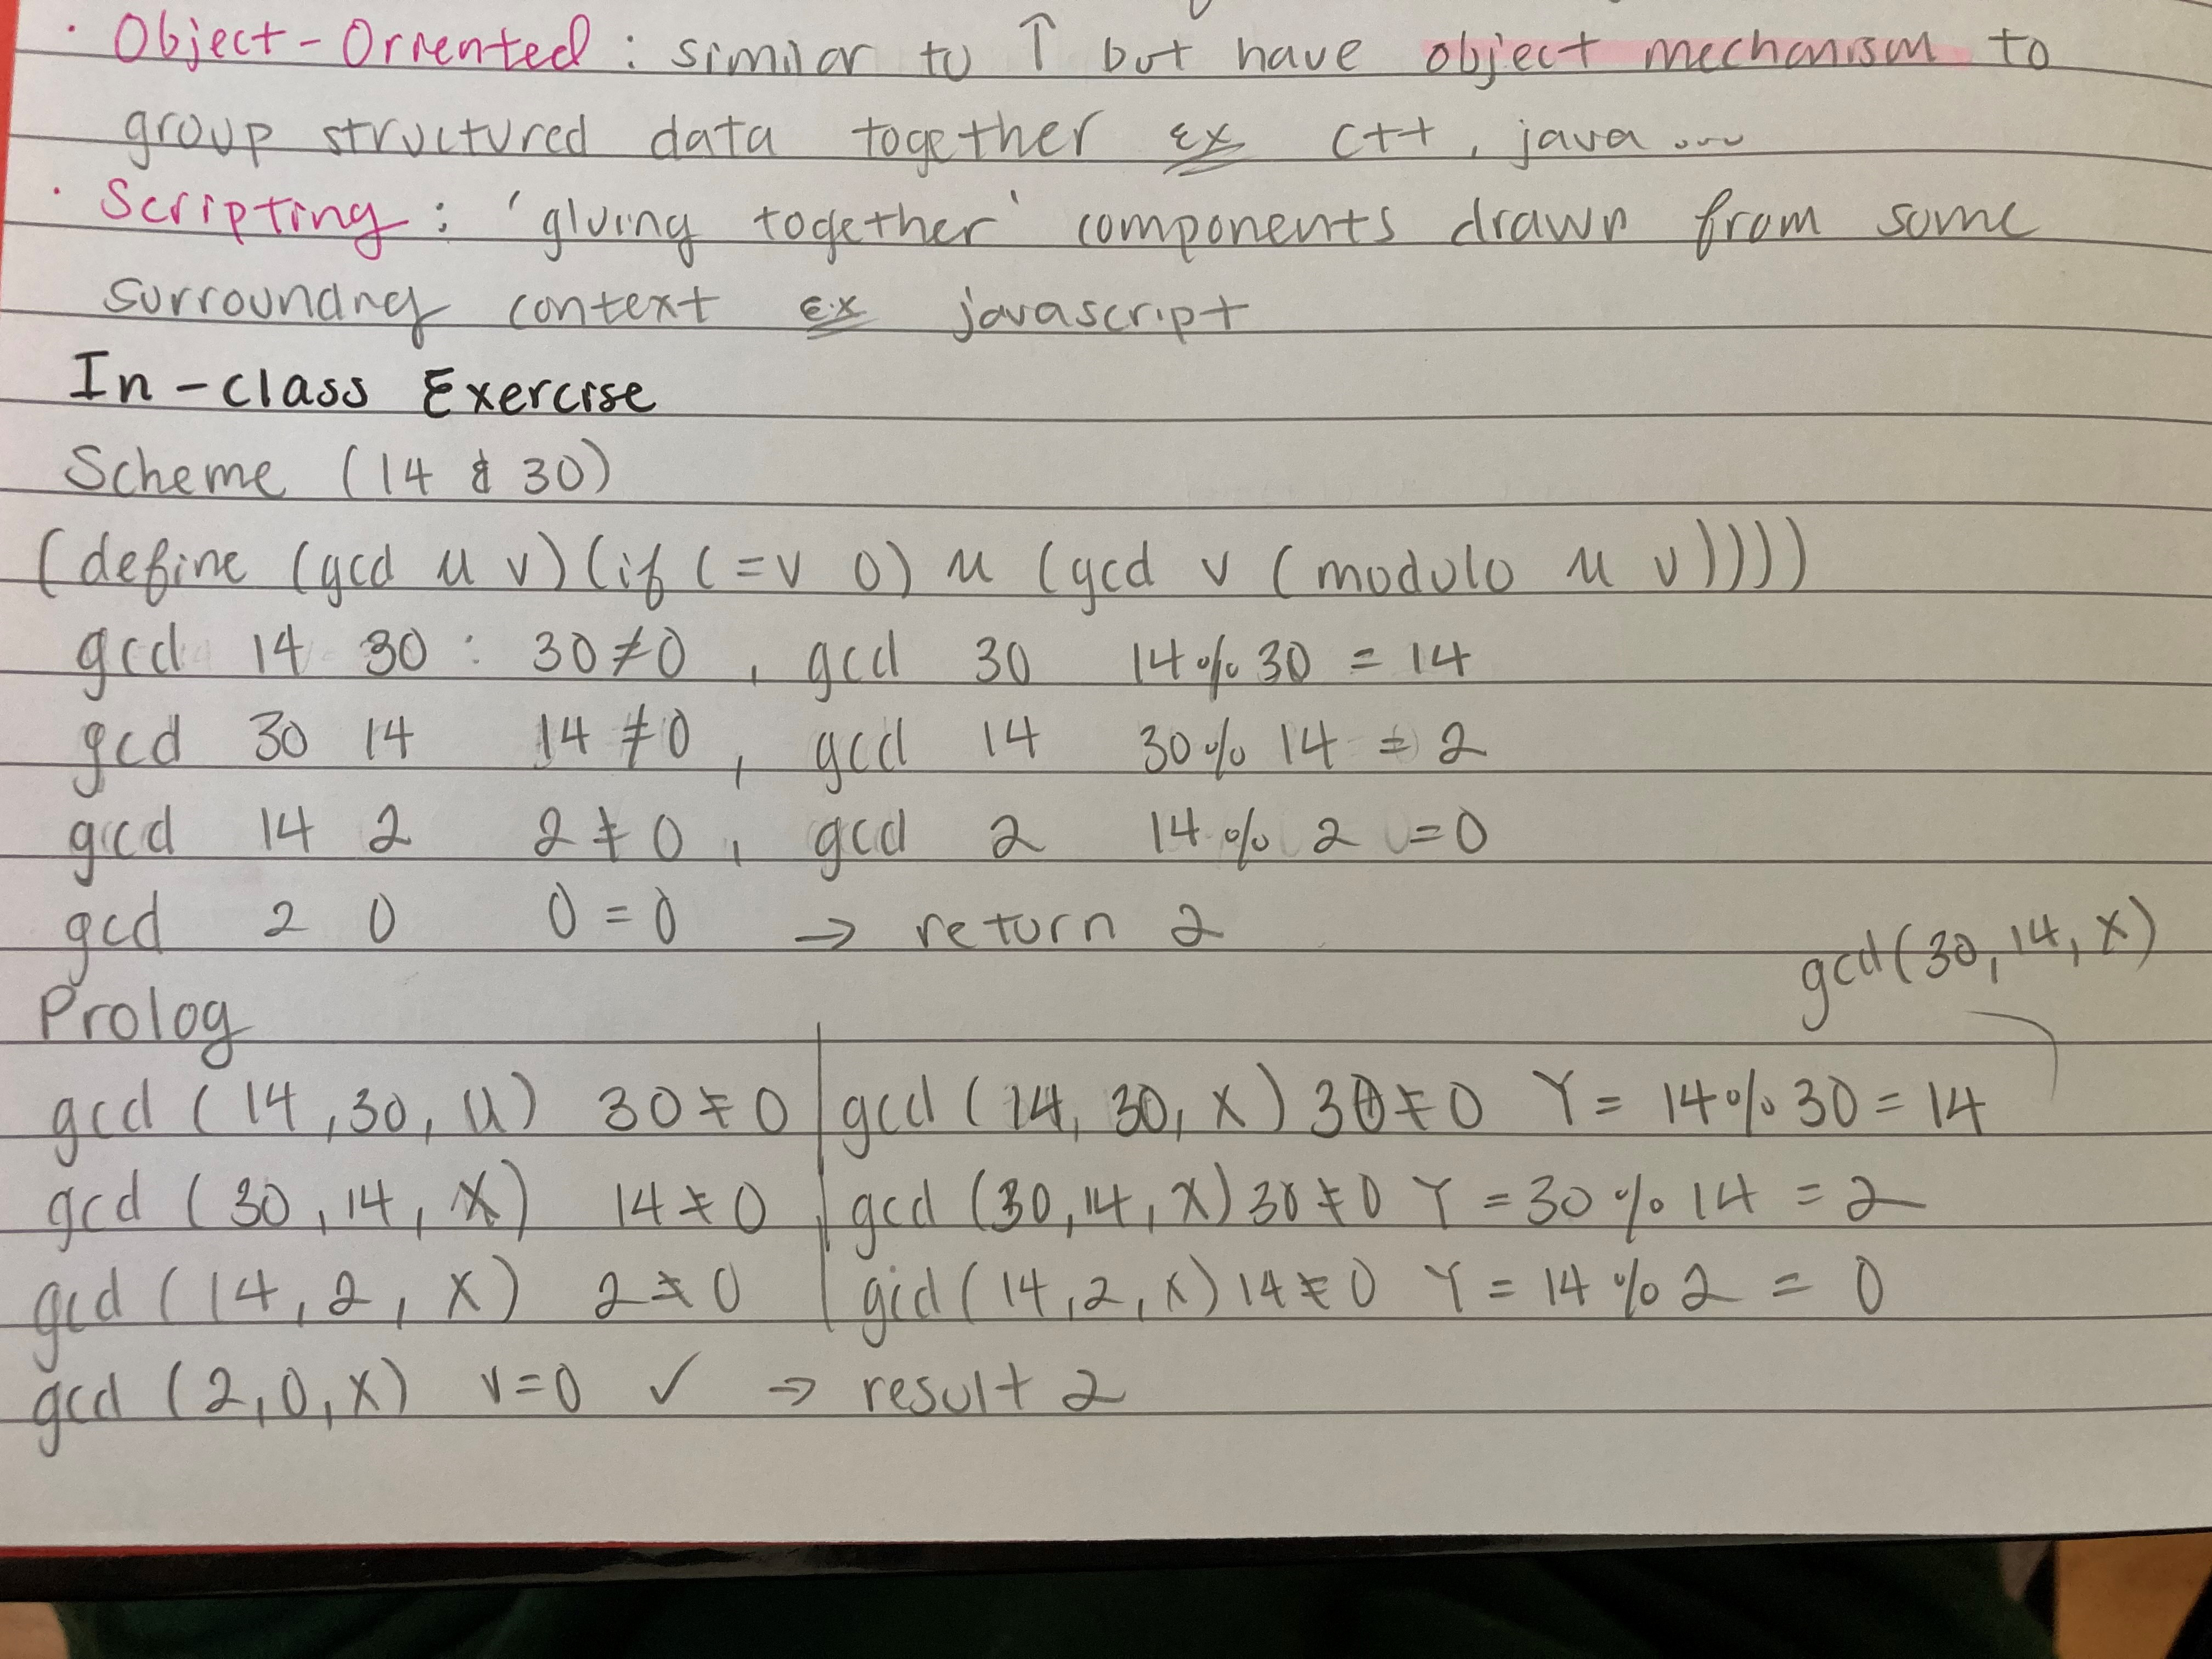 · Object-Oriented : similar to ↑ but have object mechanism to
group structured data together Ex C++, java...
· Scripting : 'gluing together' components drawn from some
surrounding context Ex javascript
In-class Exercise
Scheme (14 & 30)
(define (gcd u v)(if (=v 0) u (gcd v (modulo u v))))
gcd 14 30 : 30≠0 , gcd 30 14%30 = 14
gcd 30 14 14≠0 , gcd 14 30%14 = 2
gcd 14 2 2≠0 , gcd 2 14%2 =0
gcd 2 0 0=0 → return 2
gcd(30,14,X)
Prolog
gcd (14,30,U) 30≠0 | gcd (14,30,X) 30≠0 Y= 14%30 = 14
gcd (30,14,X) 14≠0 | gcd (30,14,X) 30≠0 Y =30%14 = 2
gcd (14,2,X) 2≠0 | gcd (14,2,X) 14≠0 Y = 14%2 = 0
gcd (2,0,X) v=0 ✓ → result 2